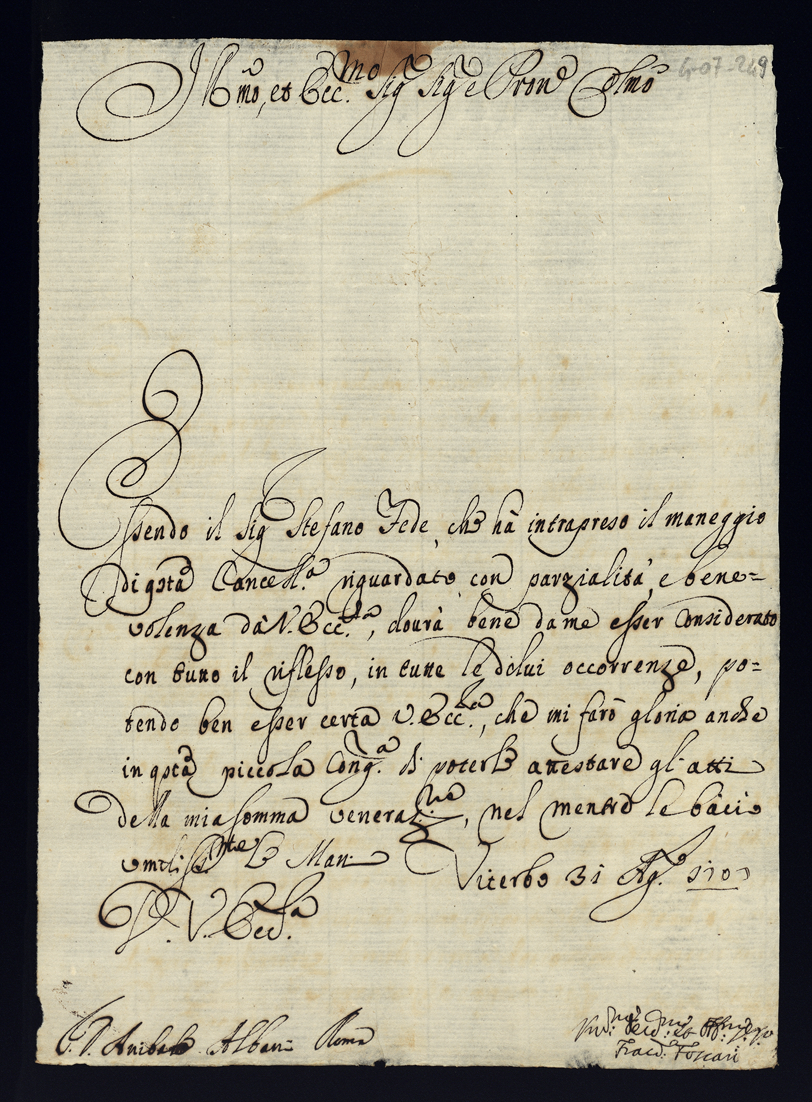 Ill.mo, et Ecc.mo Sig.r Sig.r e Pron.e Col.mo
4-07-249
Essendo il Sig.r Stefano Fede, che hà intrapreso il maneggio
di qsta Cancell.a riguardato con parzialità, e bene=
volenza dà V. Ecc.za, dourà bene da me esser considerato
con tutto il riflesso, in tutte le di lui occorrenze, po=
tendo ben esser certa V. Ecc.za, che mi farò gloria anche
in qsta piccola Cong.a di poterle attestare gl'atti
della mia somma veneraz.ne, nel mentre le bacio
umiliss.mte le Man
Viterbo 31 Ag.o 1707
D. V. Ecc.za
D. Anibale Albani Roma
Hum.mo
Foscari